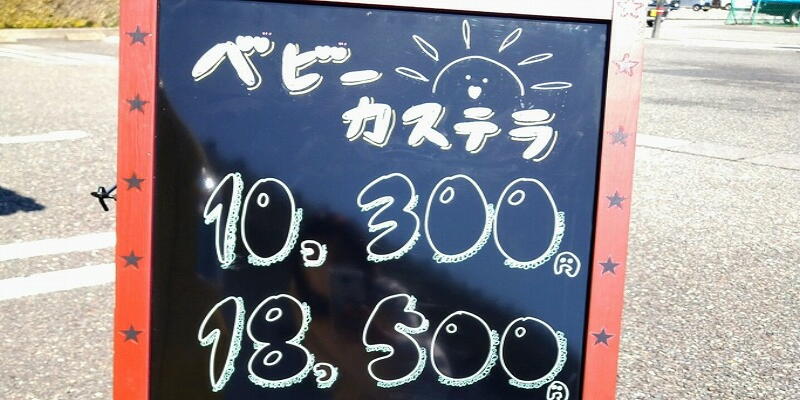 ベビー
カステラ
10コ 300円
18コ 500円